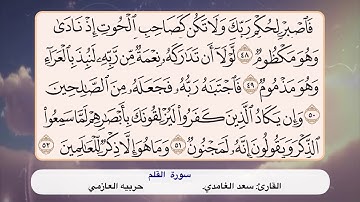 فَٱصْبِرْ لِحُكْمِ رَبِّكَ وَلَا تَكُن كَصَاحِبِ ٱلْحُوتِ إِذْ نَادَىٰ
وَهُوَ مَكْظُومٌ ٤٨ لَّوْلَآ أَن تَدَٰرَكَهُۥ نِعْمَةٌ مِّن رَّبِّهِۦ لَنُبِذَ بِٱلْعَرَآءِ
وَهُوَ مَذْمُومٌ ٤٩ فَٱجْتَبَٰهُ رَبُّهُۥ فَجَعَلَهُۥ مِنَ ٱلصَّٰلِحِينَ
٥٠ وَإِن يَكَادُ ٱلَّذِينَ كَفَرُوا۟ لَيُزْلِقُونَكَ بِأَبْصَٰرِهِمْ لَمَّا سَمِعُوا۟
ٱلذِّكْرَ وَيَقُولُونَ إِنَّهُۥ لَمَجْنُونٌ ٥١ وَمَا هُوَ إِلَّا ذِكْرٌ لِّلْعَٰلَمِينَ ٥٢
سورة القلم
القارئ: سعد الغامدي. حربيه العازمي